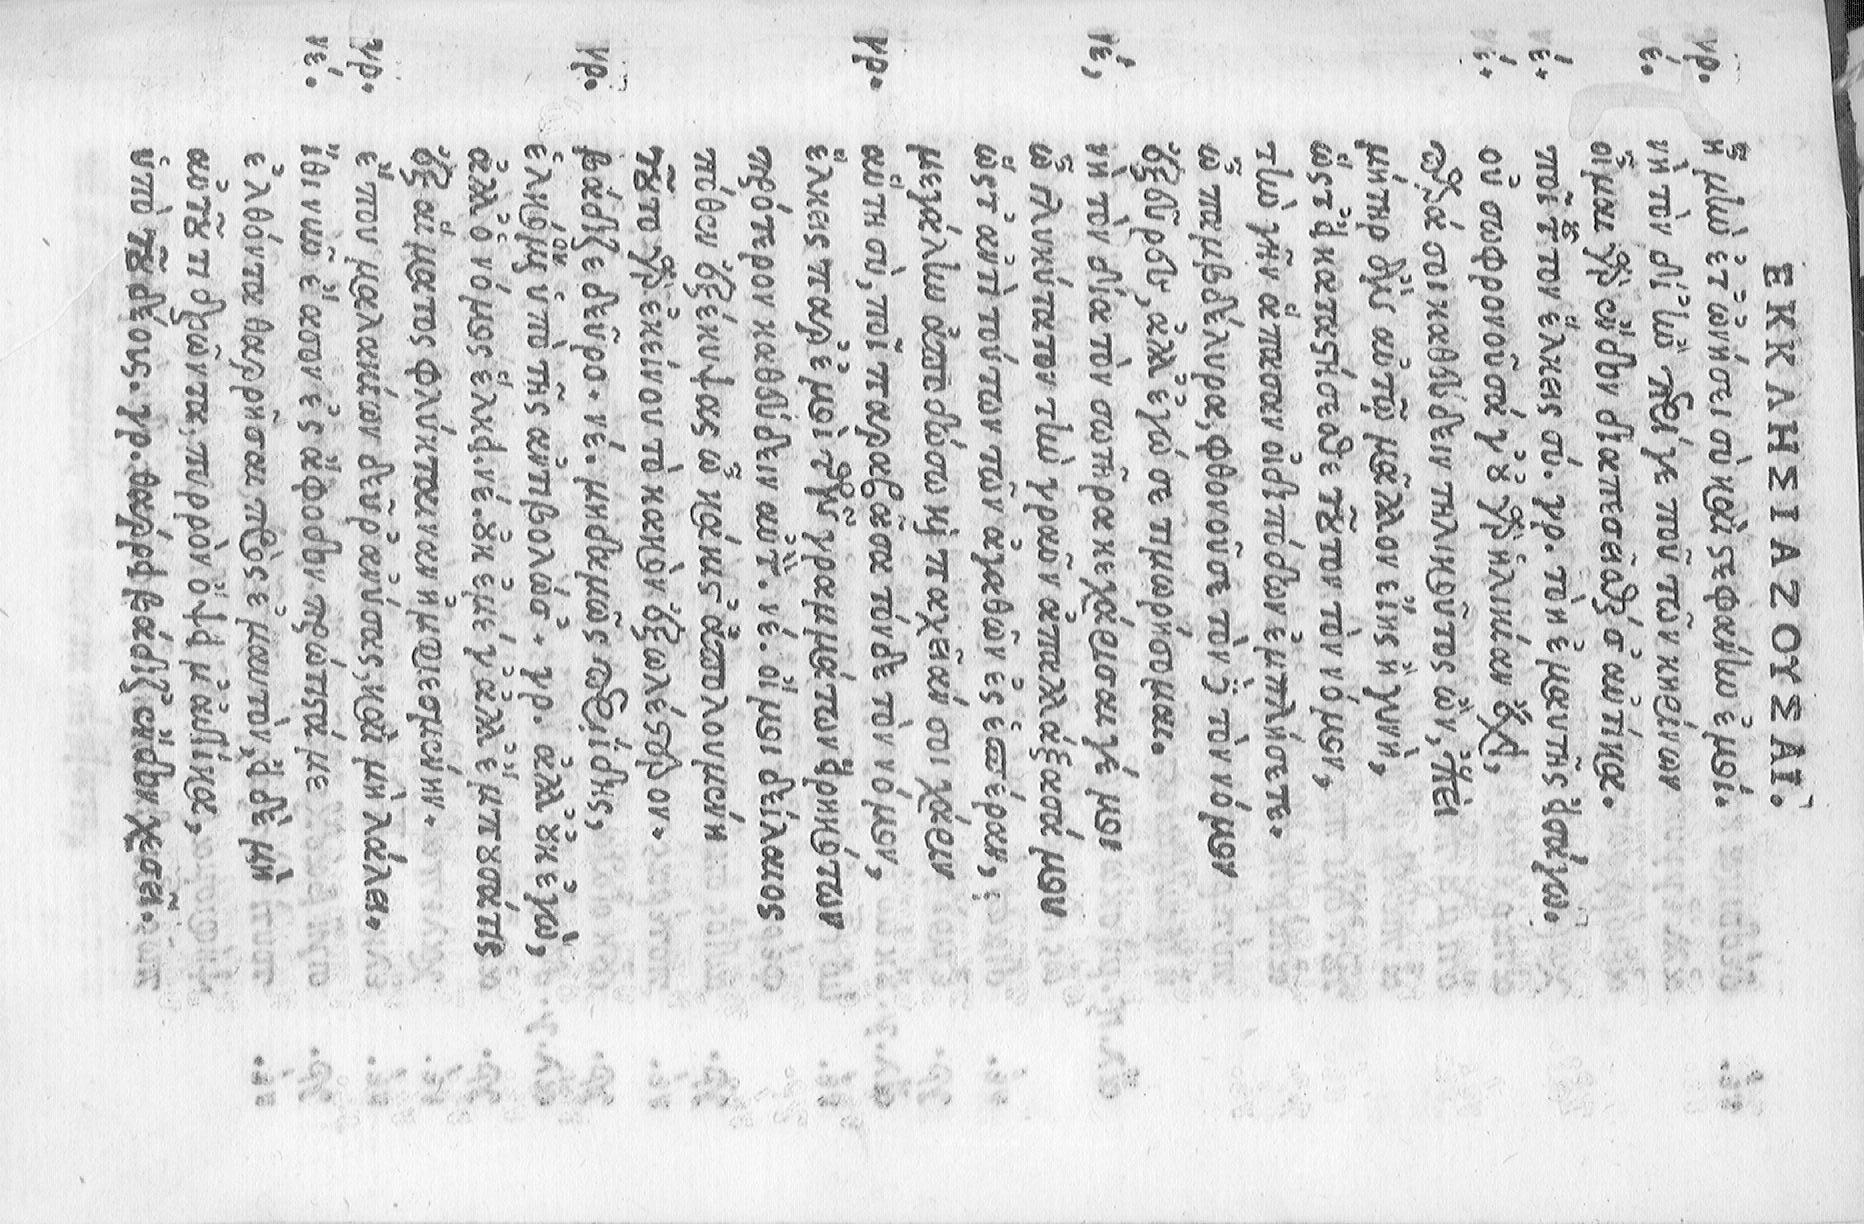 ΕΚΚΛΗΣΙΑΖΟΥΣΑΙ.
γρ. ἦ μὴν ἔτ' ὠνήσει σὺ καὶ στεφάνην ἐμοί.
νέ. νὴ τὸν δί' ἢν περ γέ που τῶν κηρίνων
οἶμαι γὰρ ἔνδον διαπεσεῖσθαί σ' αὐτίκα.
νέ. ποῖ τοῦτον ἕλκεις σύ. γρ. τὸν ἐμαυτῆς εἰσάγω.
νέ. οὐ σωφρονοῦσά γ' οὐ γὰρ ἡλικίαν ἔχει,
παρά σοι καθεύδειν τηλικοῦτος ὤν, ἐπεὶ
μήτηρ ἂν αὐτῷ μᾶλλον εἴης ἢ γυνὴ,
ὥστ' εἰ καταστήσεσθε τοῦτον τὸν νόμον,
τὴν γῆν ἅπασαν οἰδιπόδων ἐμπλήσετε.
ὦ παμβδέλυρα, φθονοῦσα τὸν τὸν νόμον
ἐξεῦρες, ἀλλ' ἐγώ σε τιμωρήσομαι.
νέ, νὴ τὸν δία τὸν σωτῆρα κεχάρισαί γέ μοι
ὦ γλυκύτατον τὴν γραῦν ἀπαλλάξασά μου
ὥστ' ἀντὶ τούτων τῶν ἀγαθῶν ἐς ἑσπέραν,
μεγάλην ἀποδώσω καὶ παχεῖάν σοι χάριν
γρ. αὕτη σὺ, ποῖ παραβᾶσα τόνδε τὸν νόμον,
ἕλκεις παρ' ἐμοὶ τῶν γραμμάτων εἰρηκότων
πρότερον καθεύδειν αὐτ. νέ. οἴμοι δείλαιος
πόθεν ἐξέκυψας ὦ κάκιστ' ἀπολουμένη
τοῦτο γὰρ ἐκείνου τὸ κακὸν ἐξωλέστερον.
γρ. βάδιζε δεῦρο. νέ. μηδαμῶς περιίδῃς,
ἑλκόμενον ὑπὸ τῆς ἀντιβολῶσ'. γρ. ἀλλ' οὐκ ἐγὼ,
ἀλλ' ὁ νόμος ἕλκει σ'. νέ. οὐκ ἐμέ γ' ἀλλ' ἔμπουσά τις
ἐξ αἵματος φλύκταιναν ἠμφιεσμένην.
γρ. ἕπου μαλακίων δεῦρ' ἀνύσας, καὶ μὴ λάλει.
νέ. ἴθι νῦν ἔασον ἐς ἄφοδον πρώτιστά με
ἐλθόντα θαρρῆσαι πρὸς ἐμαυτὸν, εἰ δὲ μὴ
αὐτοῦ τι δρῶντα, πυρρὸν ὄψει μ' αὐτίκα,
ὑπὸ τοῦ δέους. γρ. θάρρει βάδιζ' ἔνδον χεσεῖ.